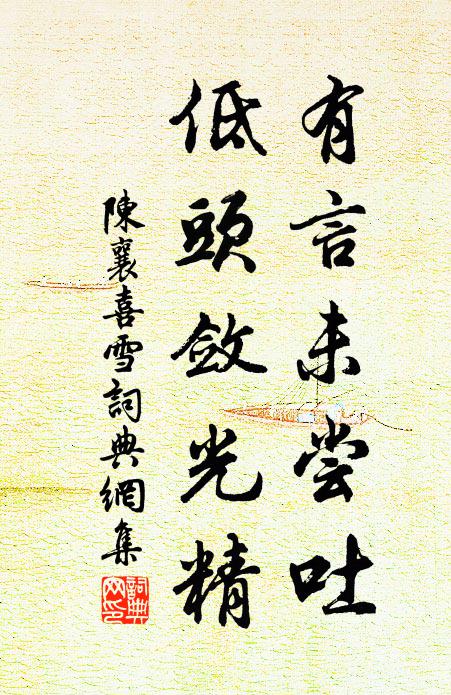 有言未尝吐
低頭斂光精
陳襄喜雪詞典網集
詞典网印